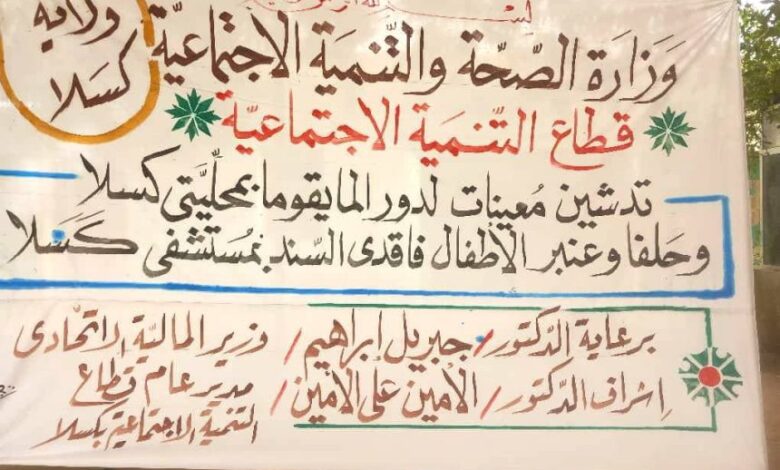 ولاية
كسلا
وَزارة الصّحّة والتّنمية الاجتماعيّة
قطاع التّنمية الاجتماعيّة
تدشين مُعينات لدور المايقوما بمحليّتي كسلا
وحلفا وعنبر الأطفال فاقدى السّند بمُستشفى كَسَلا
برعاية الدّكتور/ جبريل إبراهيم / وزير الماليّة الاتحادى
إشراف الدّكتور/ الأمين على الأمين / مدير عام قطاع
التنمية الاجتماعية بكسلا